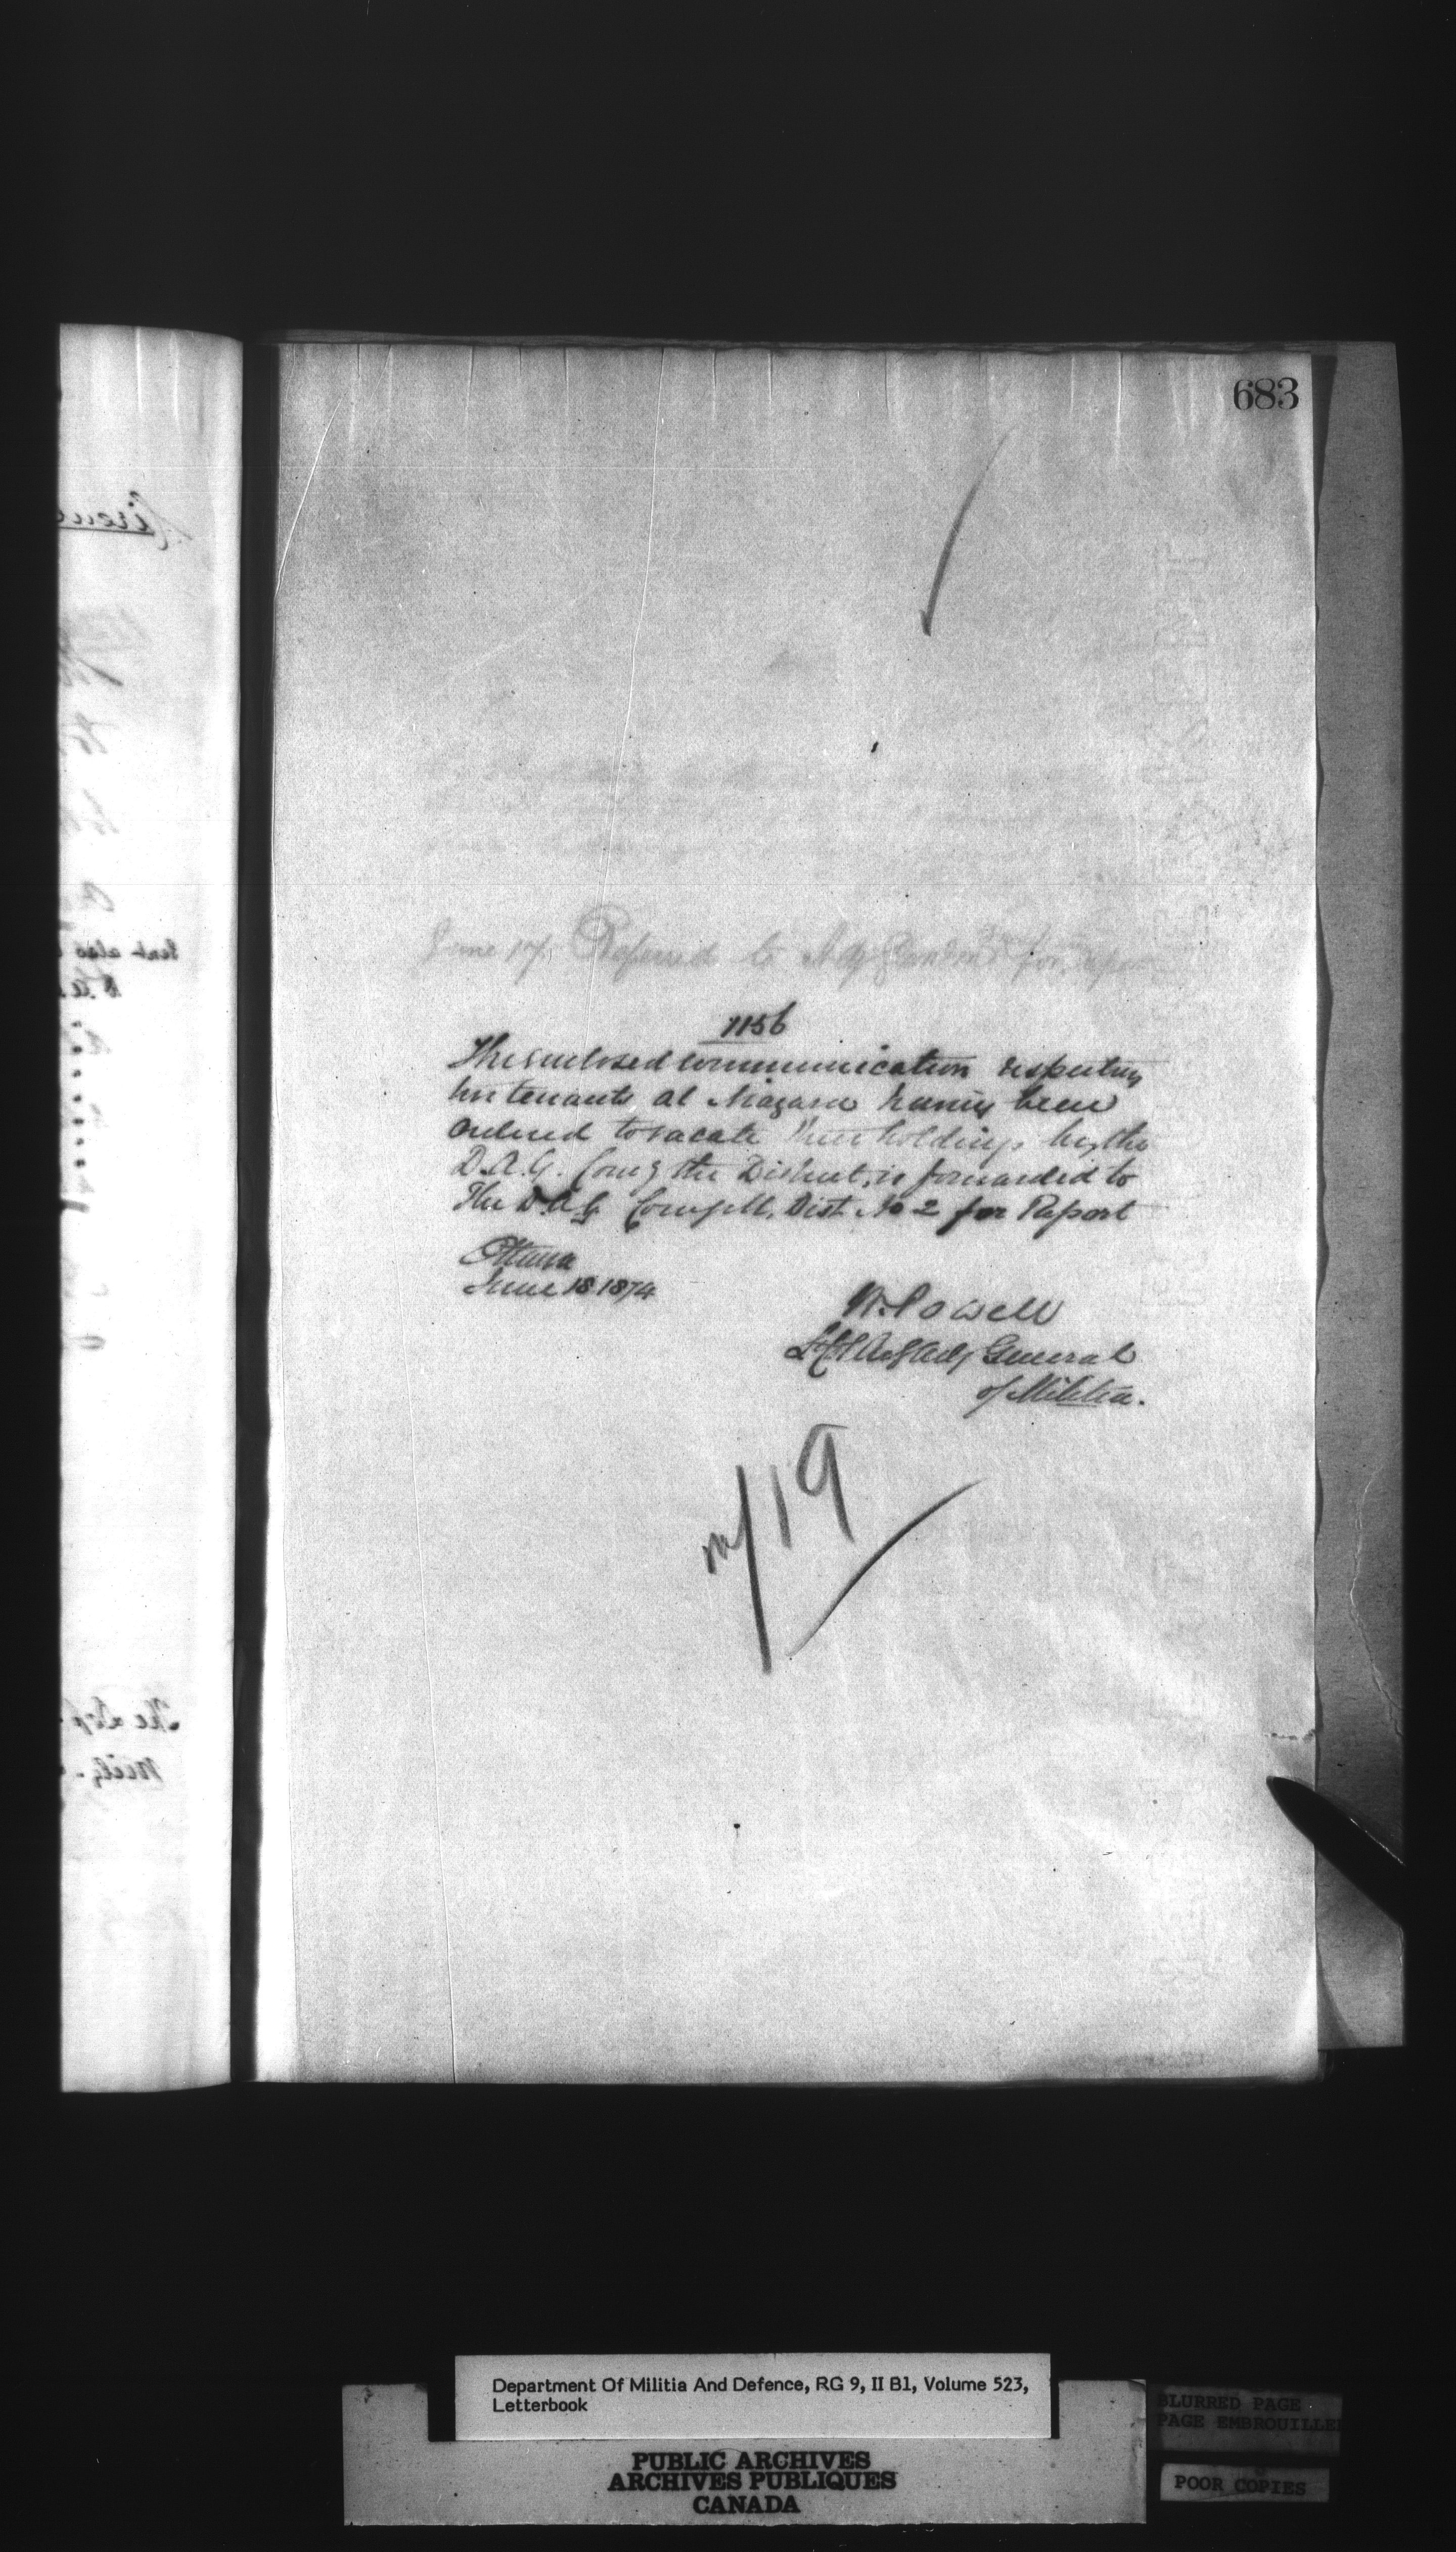 683
June 17, Referred to for report
1156
The enclosed communication respecting
her tenants at Niagara having been
ordered to vacate their holdings by the
D.A.G. Comg the District, is forwarded to
The D.A.G. Comg Mil. Dist. No 2 for Report
Ottawa
June 18 1874
W. Powell
Lt Col Actg Adj General
of Militia.
19
Sent also
The Dep
Department Of Militia And Defence, RG 9, II B1, Volume 523,
Letterbook
PUBLIC ARCHIVES
ARCHIVES PUBLIQUES
CANADA
BLURRED PAGE
PAGE EMBROUILLE
POOR COPIES